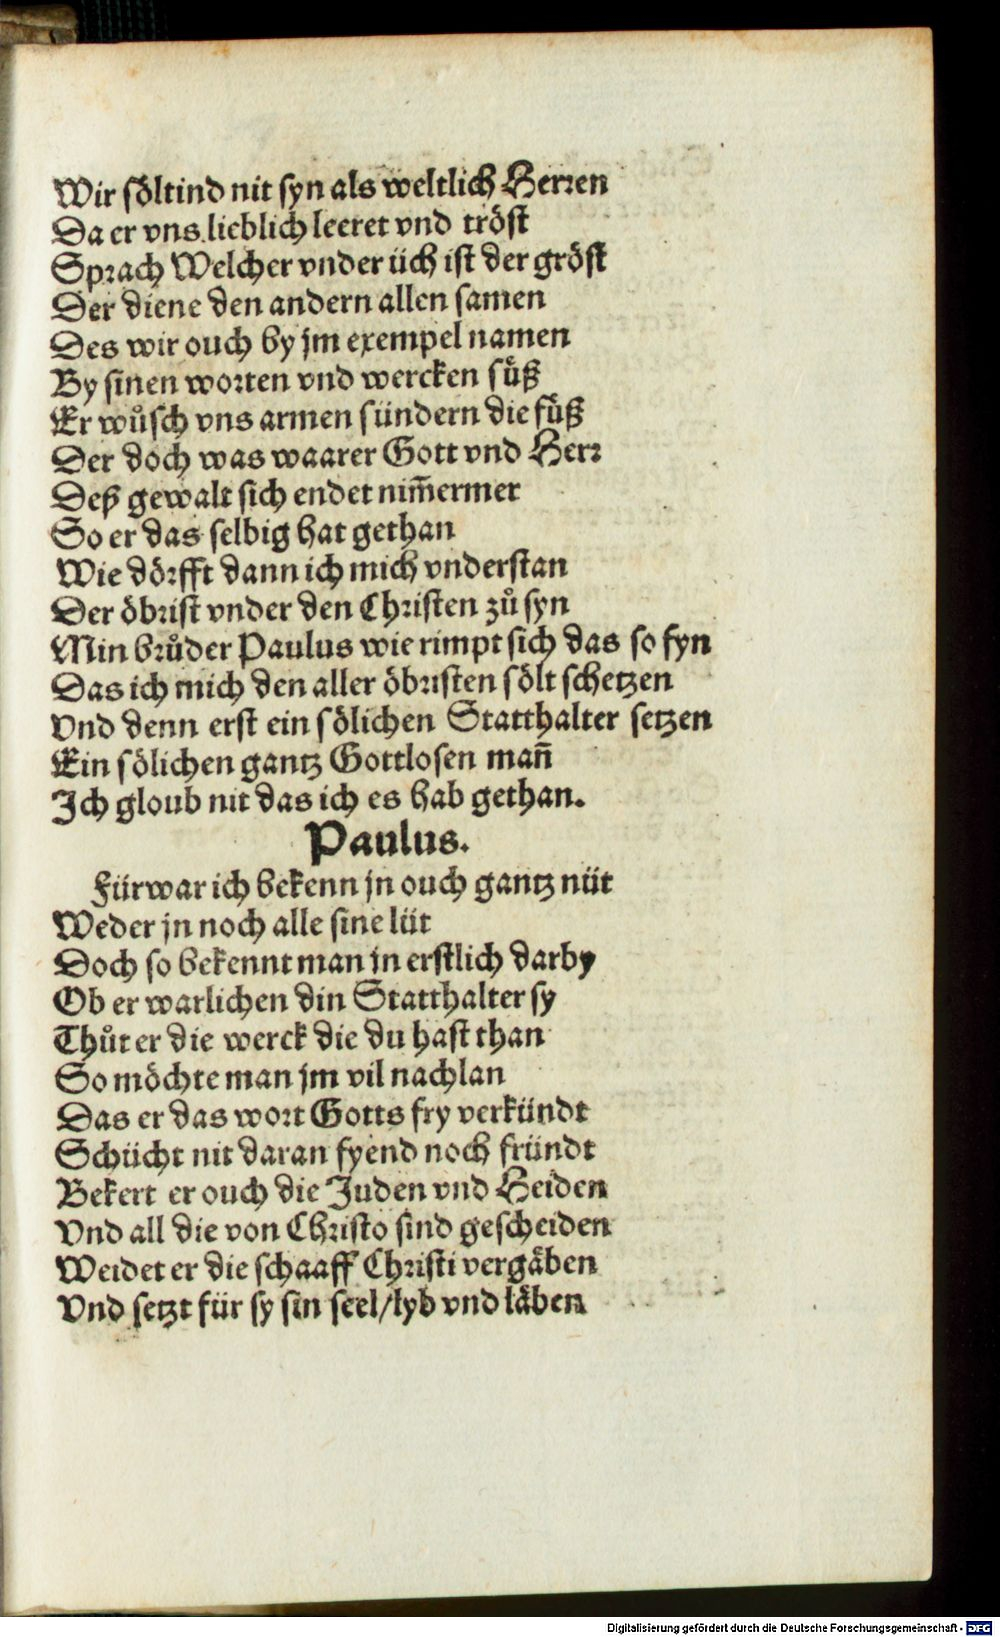 Wir söltind nit syn als weltlich Herren
Da er vns lieblich leeret vnd tröst
Sprach Welcher vnder üch ist der gröst
Der diene den andern allen samen
Des wir ouch by jm exempel namen
By sinen worten vnd wercken süͤß
Er wuͦsch vns armen sündern die füͤß
Der doch was waarer Gott vnd Herr
Deß gewalt sich endet nim̄ermer
So er das selbig hat gethan
Wie dörfft dann ich mich vnderstan
Der öbrist vnder den Christen zuͦ syn
Min bruͦder Paulus wie rimpt sich das so fyn
Das ich mich den aller öbristen sölt schetzen
Vnd denn erst ein sölichen Statthalter setzen
Ein sölichen gantz Gottlosen man̄
Ich gloub nit das ich es hab gethan.
Paulus.
Fürwar ich bekenn jn ouch gantz nüt
Weder jn noch alle sine lüt
Doch so bekennt man jn erstlich darby
Ob er warlichen din Statthalter sy
Thuͦt er die werck die du hast than
So möchte man jm vil nachlan
Das er das wort Gotts fry verkündt
Schücht nit daran fyend noch fründt
Bekert er ouch die Juden vnd Heiden
Vnd all die von Christo sind gescheiden
Weidet er die schaaff Christi vergäben
Vnd setzt für sy sin seel/lyb vnd läben
Digitalisierung gefördert durch die Deutsche Forschungsgemeinschaft - DFG